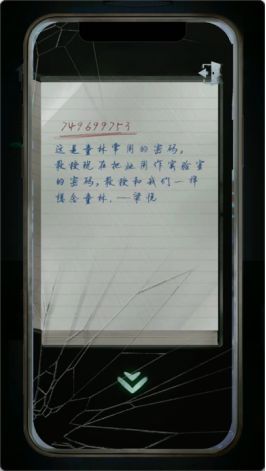 749699753
这是童林常用的密码,
教授现在把此用作实验室
的密码,教授和我们一样
惦念童林.——梁悦